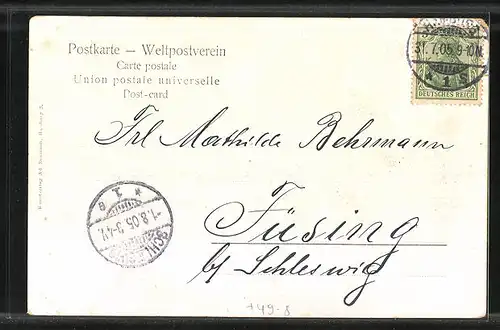 Postkarte — Weltpostverein
Carte postale
Union postale universelle
Post-card
31.7.05.9-10V.
* 1
DEUTSCHES REICH
Frl Mathilde Behrmann
Füsing
b/ Schleswig
* 1 B
-1.8.05.3-4V.
SCHLESWIG
+49-8